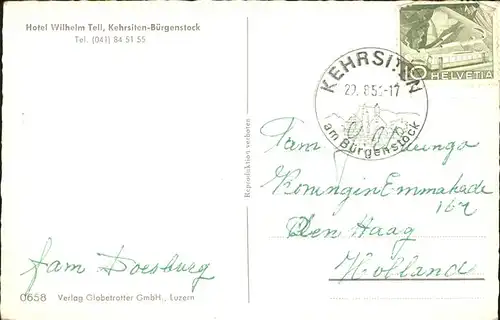 Hotel Wilhelm Tell, Kehrsiten-Bürgenstock
Tel. (041) 84 51 55
10 HELVETIA
KEHRSITEN
-17
am Bürgenstock
Reproduktion verboten
Fam
Koningin Emmakade
Den Haag
Holland
fam Doesburg
0658 Verlag Globetrotter GmbH., Luzern